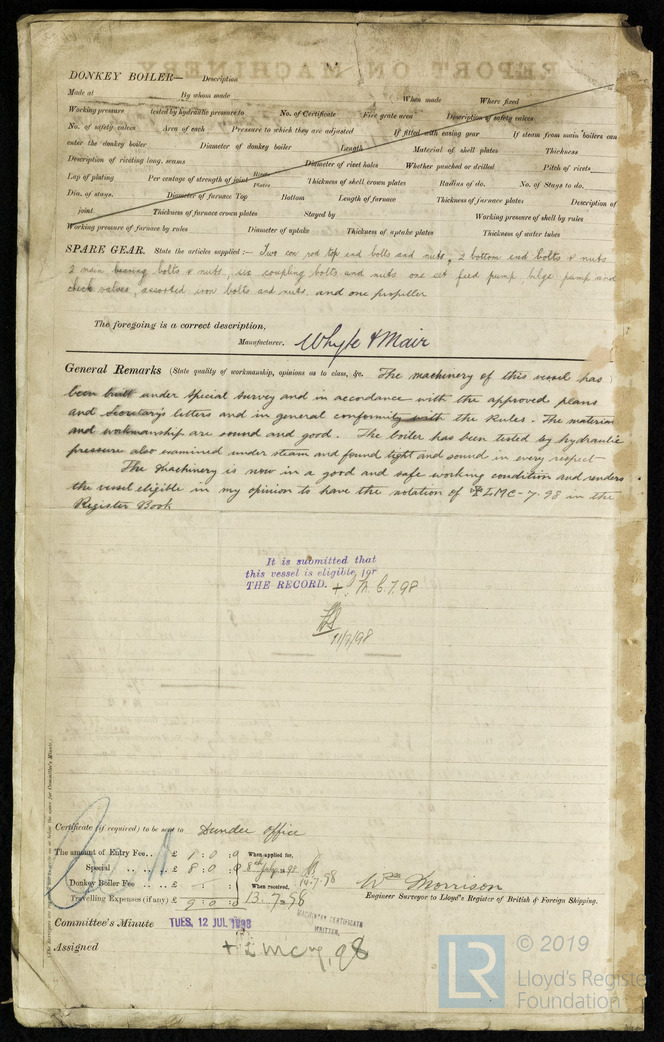 REPORT ON MACHINERY
DONKEY BOILER— Description
Made at By whom made When made Where fixed
Working pressure tested by hydraulic pressure to No. of Certificate Fire grate area Description of safety valves
No. of safety valves Area of each Pressure to which they are adjusted If fitted with easing gear If steam from main boilers can
enter the donkey boiler Diameter of donkey boiler Length Material of shell plates Thickness
Description of riveting long. seams Diameter of rivet holes Whether punched or drilled Pitch of rivets
Lap of plating Per centage of strength of joint Rivets Plates Thickness of shell crown plates Radius of do. No. of Stays to do.
Dia. of stays. Diameter of furnace Top Bottom Length of furnace Thickness of furnace plates Description of
joint Thickness of furnace crown plates Stayed by Working pressure of shell by rules
Working pressure of furnace by rules Diameter of uptake Thickness of uptake plates Thickness of water tubes
SPARE GEAR. State the articles supplied:— Two con rod top end bolts and nuts, 2 bottom end bolts & nuts
2 main bearing bolts & nuts, six coupling bolts and nuts one set feed pump, bilge pump and
check valves, assorted iron bolts and nuts, and one propeller
The foregoing is a correct description,
Manufacturer. Whyte & Mair
General Remarks (State quality of workmanship, opinions as to class, &c. The machinery of this vessel has
been built under Special Survey and in accordance with the approved plans
and Secretary's letters and in general conformity with the Rules. The material
and workmanship are sound and good. The boiler has been tested by hydraulic
pressure also examined under steam and found tight and sound in every respect
The Machinery is now in a good and safe working condition and renders
the vessel eligible in my opinion to have the notation of + LMC-7.98 in the
Register Book
It is submitted that
this vessel is eligible for
THE RECORD. +
11/7/98
Certificate (if required) to be sent to Dundee Office
The amount of Entry Fee . . £ 1 : 0 : 0 When applied for,
Special . . . . £ 8 : 0 : 0
Donkey Boiler Fee . . £ When received,
Travelling Expenses (if any) £ 9 : 0 : 0 13.7.98
14.7.98
Wm Morrison
Engineer Surveyor to Lloyd's Register of British & Foreign Shipping.
Committee's Minute TUES. 12 JUL 1898
MACHINERY CERTIFICATE
WRITTEN.
Assigned + LMC 7,98
LR
© 2019
Lloyd's Register
Foundation